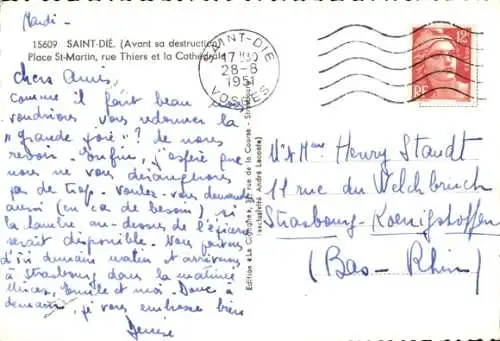 Mardi -
15609 SAINT-DIÉ. (Avant sa destruction)
Place St-Martin, rue Thiers et la Cathédrale
SAINT-DIÉ
17H30
28-8
1951
VOSGES
12F
RF
Chers Amis,
Comme il fait beau nous
voudrions vous redonner la
"grande joie"? de nous
revoir. Enfin, j'espère que
nous ne vous dérangerons
pas de trop. Voulez-vous demander
aussi (en cas de besoin), si
la chambre au-dessus de l'épicerie
serait disponible. Nous partons
d'ici demain matin et arriverons
à Strasbourg dans la matinée
Mices, Emile et moi. Donc à
demain, je vous embrasse bien
Denise
Edition "La Cigogne", rue de la Course - Strasbourg
(exclusivité André Leconte)
M & Mme Henry Staudt
11 rue du Welchbruch
Strasbourg-Koenigshoffen
(Bas-Rhin)